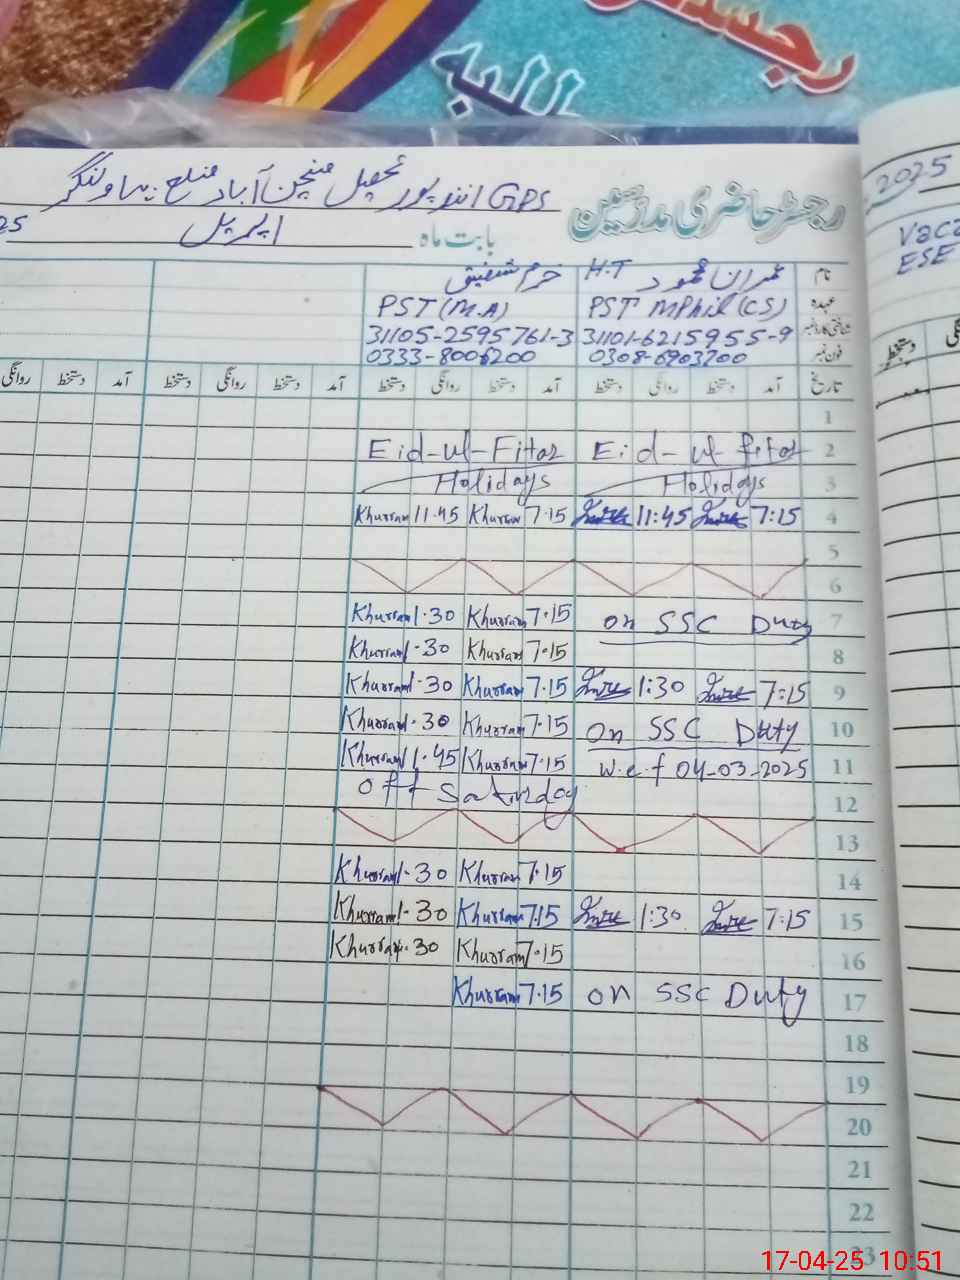 رجسٹر
طلبہ
GPS انند پور تحصیل منچن آباد ضلع بہاولنگر
رجسٹر حاضری مدرسین
بابت ماہ اپریل 25
2025
Vaca
ESE
نام عمران محمود H.T خرم شفیق
عہدہ PST MPhil (CS) PST (M.A)
شناختی کارڈ نمبر 31101-6215955-9 31105-2595761-3
فون نمبر 0308-6903700 0333-8006200
تاریخ آمد دستخط روانگی دستخط آمد دستخط روانگی دستخط آمد دستخط روانگی دستخط آمد دستخط روانگی
دستخط
1
Eid-ul-Fitar Eid-ul-fitar 2
Holidays Holidays 3
Khurram 11.45 Khurram 7.15 11:45 7:15 4
5
6
Khurram 1.30 Khurram 7.15 on SSC Duty 7
Khurram 1.30 Khurram 7.15 8
Khurram 1.30 Khurram 7.15 1:30 7:15 9
Khurram 1.30 Khurram 7.15 on SSC Duty 10
Khurram 11.45 Khurram 7.15 w.e.f 04-03-2025 11
off Saturday 12
13
Khurram 1.30 Khurram 7.15 14
Khurram 1.30 Khurram 7.15 1:30 7:15 15
Khurram 1.30 Khurram 7.15 16
Khurram 7.15 on SSC Duty 17
18
19
20
21
22
23
17-04-25 10:51